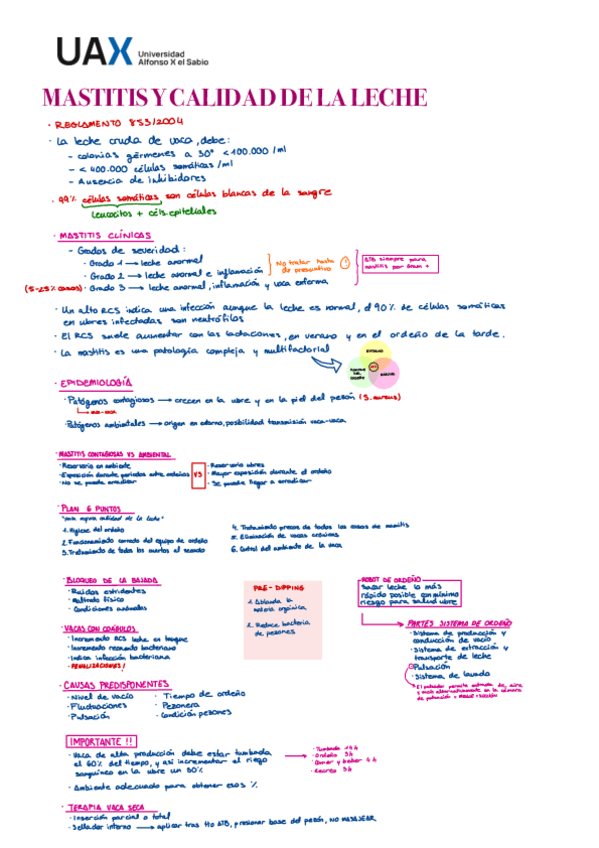 UAX
Universidad
Alfonso X el Sabio
MASTITIS Y CALIDAD DE LA LECHE
· REGLAMENTO 853/2004
· La leche cruda de vaca, debe:
- colonias gérmenes a 30º <100.000 /ml
- < 400.000 células somáticas /ml
- Ausencia de inhibidores
· 99% células somáticas, son células blancas de la sangre
leucocitos + céls. epiteliales
· MASTITIS CLÍNICAS
- Grados de severidad:
· Grado 1 → leche anormal
· Grado 2 → leche anormal e inflamación
(5-25% casos) · Grado 3 → leche anormal, inflamación y vaca enferma
No tratar hasta
de presuntivo
!
ATB siempre para
mastitis por Gram +
· Un alto RCS indica una infección aunque la leche es normal, el 90% de células somáticas
en ubres infectadas son neutrófilos
· El RCS suele aumentar con las lactaciones, en verano y en el ordeño de la tarde.
· La mastitis es una patología compleja y multifactorial
· EPIDEMIOLOGÍA
· Patógenos contagiosos → crecen en la ubre y en la piel del pezón (S. aureus)
· Patógenos ambientales → origen en entorno, posibilidad transmisión vaca-vaca
· MASTITIS CONTAGIOSAS VS AMBIENTAL
· Reservorio en ambiente
· Exposición durante periodos entre ordeños
· No se puede erradicar
VS
· Reservorio ubres
· Mayor exposición durante el ordeño
· Se puede llegar a erradicar
· PLAN 6 PUNTOS
"para mejora calidad de la leche"
1. Higiene del ordeño
2. Funcionamiento correcto del equipo de ordeño
3. Tratamiento de todos los cuartos al secado
4. Tratamiento precoz de todos los casos de mastitis
5. Eliminación de vacas crónicas
6. Control del ambiente de la vaca
· BLOQUEO DE LA BAJADA
- Ruidos estridentes
- Maltrato físico
- Condiciones anómalas
PRE-DIPPING
1. Ablanda la
materia orgánica
2. Reduce bacteria
de pezones
ROBOT DE ORDEÑO
Sacar leche lo más
rápido posible con mínimo
riesgo para salud ubre
· VACAS CON COÁGULOS
· Incremento RCS leche en tanque
· Incremento recuento bacteriano
· Indica infección bacteriana
· PENALIZACIONES!
PARTES SISTEMA DE ORDEÑO
· Sistema de producción y
conducción de vacío
· Sistema de extracción y
transporte de leche
· Pulsación
· Sistema de lavado
· El pulsador permite entrada de aire
y vacío alternativamente en la cámara
· CAUSAS PREDISPONENTES
- Nivel de vacío
- Fluctuaciones
- Pulsación
- Tiempo de ordeño
- Pezonera
- Condición pezones
IMPORTANTE !!
· Vaca de alta producción debe estar tumbada
el 60% del tiempo, y así incrementar el riego
sanguíneo en la ubre un 30%
· Ambiente adecuado para obtener esos %
· Tumbada 14h
· Ordeño 3h
· Comer y beber 4h
· Recreo 3h
· TERAPIA VACA SECA
· Inserción parcial o total
· Sellador interno → aplicar tras tto ATB, presionar base del pezón, NO MASAJEAR